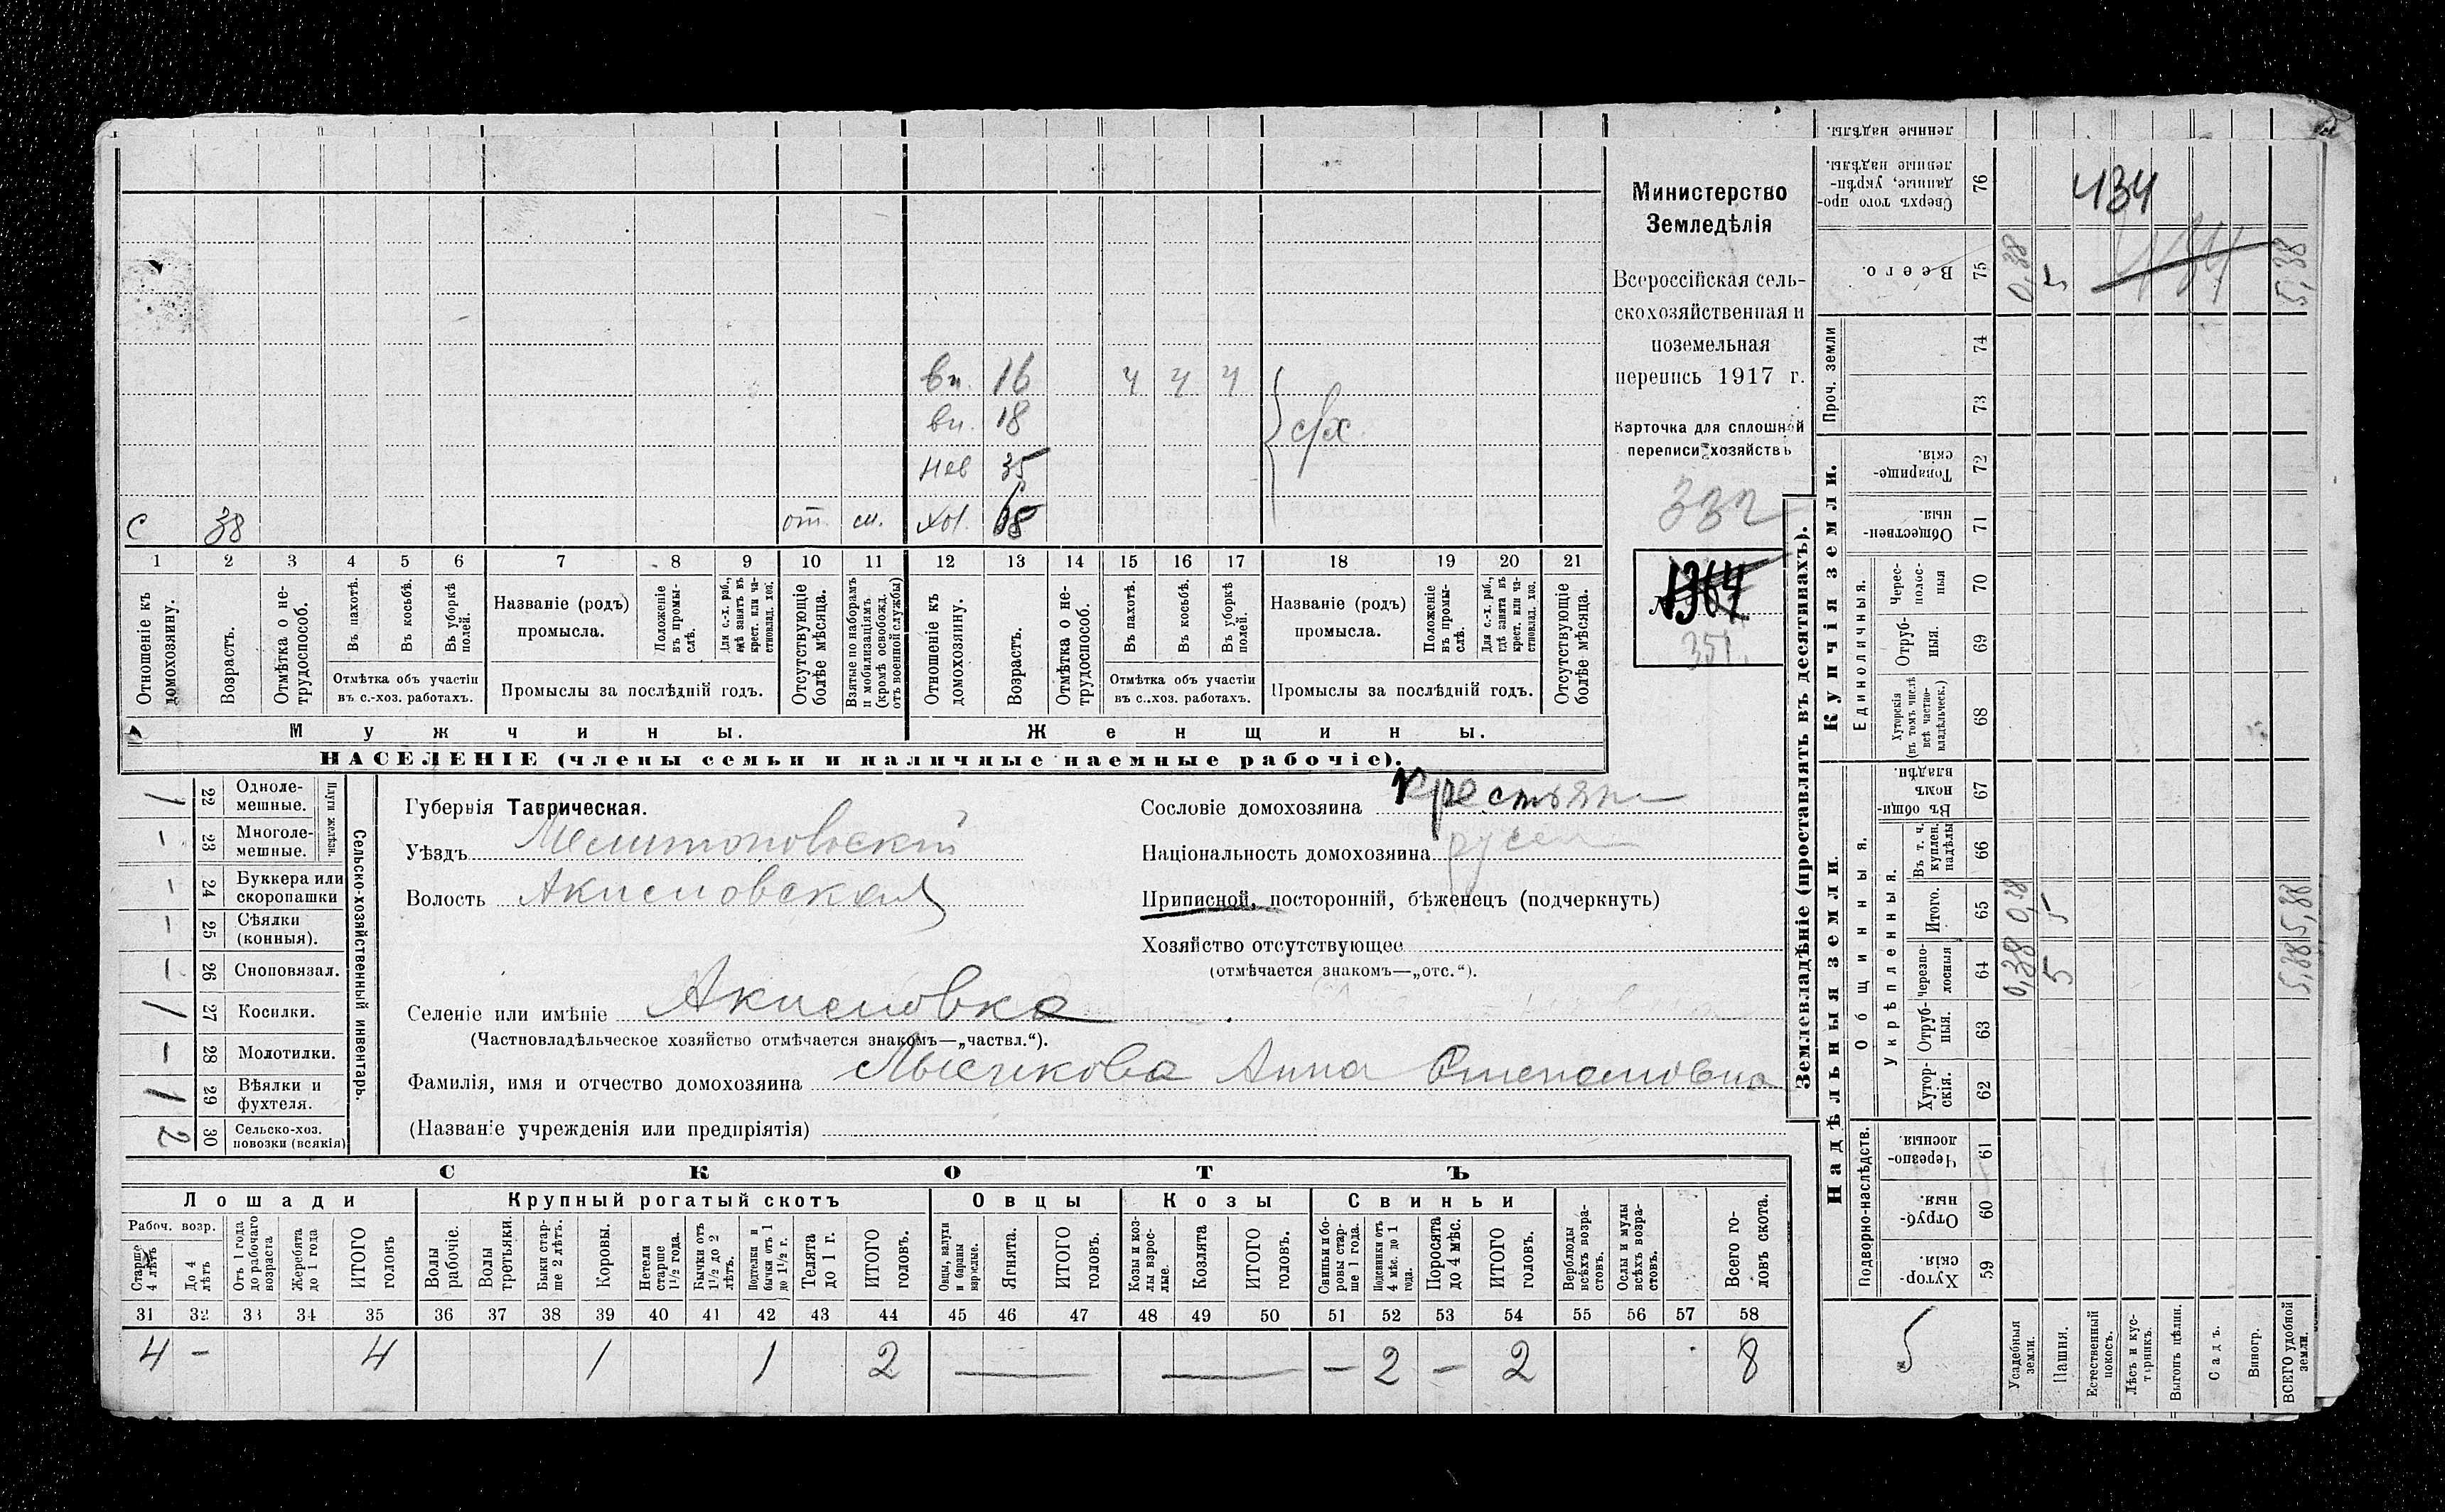 вн. 16 ч ч ч
вн. 18 с/х
нев 35
с 38 от. сл. хоз. 65
1 2 3 4 5 6 7 8 9 10 11 12 13 14 15 16 17 18 19 20 21
Отношеніе къ домохозяину.
Возрастъ.
Отмѣтка о нетрудоспособ.
Въ пахотѣ.
Въ косьбѣ.
Въ уборкѣ полей.
Отмѣтка объ участіи
въ с.-хоз. работахъ.
Названіе (родъ)
промысла.
Положеніе въ промыслѣ.
Для с.-х. раб., гдѣ занятъ въ крест. или частновлад. хоз.
Промыслы за послѣдній годъ.
Отсутствующіе болѣе мѣсяца.
Взятые по наборамъ и мобилизаціямъ (кромѣ освобожд. отъ военной службы)
Отношеніе къ домохозяину.
Возрастъ.
Отмѣтка о нетрудоспособ.
Въ пахотѣ.
Въ косьбѣ.
Въ уборкѣ полей.
Отмѣтка объ участіи
въ с..хоз. работахъ.
Названіе (родъ)
промысла.
Положеніе въ промыслѣ.
Для с.-х. раб., гдѣ занята въ крест. или частновлад. хоз.
Промыслы за послѣдній годъ.
Отсутствующіе болѣе мѣсяца.
Мужчины. Женщины.
НАСЕЛЕНІЕ (члены семьи и наличные наемные рабочіе).
Министерство
Земледѣлія
Всероссійская сель-
скохозяйственная и
поземельная
перепись 1917 г.
Карточка для сплошной
переписи хозяйствъ
332
1364
351.
Сельско-хозяйственный инвентарь.
Плуги желѣзн.
1 22 Одноле-
мешные.
— 23 Многоле-
мешные.
— 24 Буккера или
скоропашки
— 25 Сѣялки
(конныя).
— 26 Сноповязал.
1 27 Косилки.
— 28 Молотилки.
1 29 Вѣялки и
фухтеля.
2 30 Сельско-хоз.
повозки (всякія)
Губернія Таврическая.
Уѣздъ Мелитопольскій
Волость Акимовская
Сословіе домохозяина крестьян
Національность домохозяина русск
Приписной, посторонній, бѣженецъ (подчеркнуть)
Хозяйство отсутствующее
(отмѣчается знакомъ—„отс.“).
Селеніе или имѣніе Акимовка
(Частновладѣльческое хозяйство отмѣчается знакомъ—„частвл.“).
Фамилія, имя и отчество домохозяина Лысикова Анна Степановна
(Названіе учрежденія или предпріятія)
СКОТЪ
Лошади Крупный рогатый скотъ Овцы Козы Свиньи
Рабоч. возр.
Старше 4 лѣтъ
До 4 лѣтъ
Отъ 1 года до рабочаго возраста
Жеребята до 1 года
ИТОГО головъ
Волы рабочіе.
Волы третьяки.
Быки старше 2 лѣтъ.
Коровы.
Нетели старше 1½ года.
Бычки отъ 1½ до 2 лѣтъ.
Подтелки и бычки отъ 1 до 1½ г.
Телята до 1 г.
ИТОГО головъ.
Овцы, валухи и бараны взрослые.
Ягнята.
ИТОГО головъ.
Козы и козлы взрослые.
Козлята
ИТОГО головъ.
Свиньи и боровы старше 1 года.
Подсвинки отъ 4 мѣс. до 1 года.
Поросята до 4 мѣс.
ИТОГО головъ.
Верблюды всѣхъ возрастовъ.
Ослы и мулы всѣхъ возрастовъ.
Всего головъ скота.
31 32 33 34 35 36 37 38 39 40 41 42 43 44 45 46 47 48 49 50 51 52 53 54 55 56 57 58
4 — 4 1 1 2 — — — 2 — 2 8
Землевладѣніе (проставлять въ десятинахъ).
ленные надѣлы.
Сверхъ того проданные, укрѣпленные надѣлы. 76 434
Всего. 75 0,38 5 434 5,38
Проч. земли 74
73
Купчія земли.
Товарищескія. 72
Общественныя. 71
Единоличныя.
Черес-полосныя 70
Отрубныя. 69
Хуторскія (въ томъ числѣ всѣ частновладѣльческ.) 68
Надѣльныя земли.
Общинныя.
Въ общинномъ владѣн. 67
Укрѣпленныя.
Въ т. ч. куплен. надѣлы 66
Итого. 65 0,38 5 5,38
Черезполосныя 64 0,38 5 5,38
Отрубныя. 63
Хуторскія. 62
Подворно-наслѣдств.
Черезполосныя. 61
Отрубныя. 60
Хуторскія. 59
5
Усадебныя земли.
Пашня.
Естественный покосъ.
Лѣсъ и кустарникъ.
Выгонъ цѣлин.
Садъ.
Виногр.
ВСЕГО удобной земли.